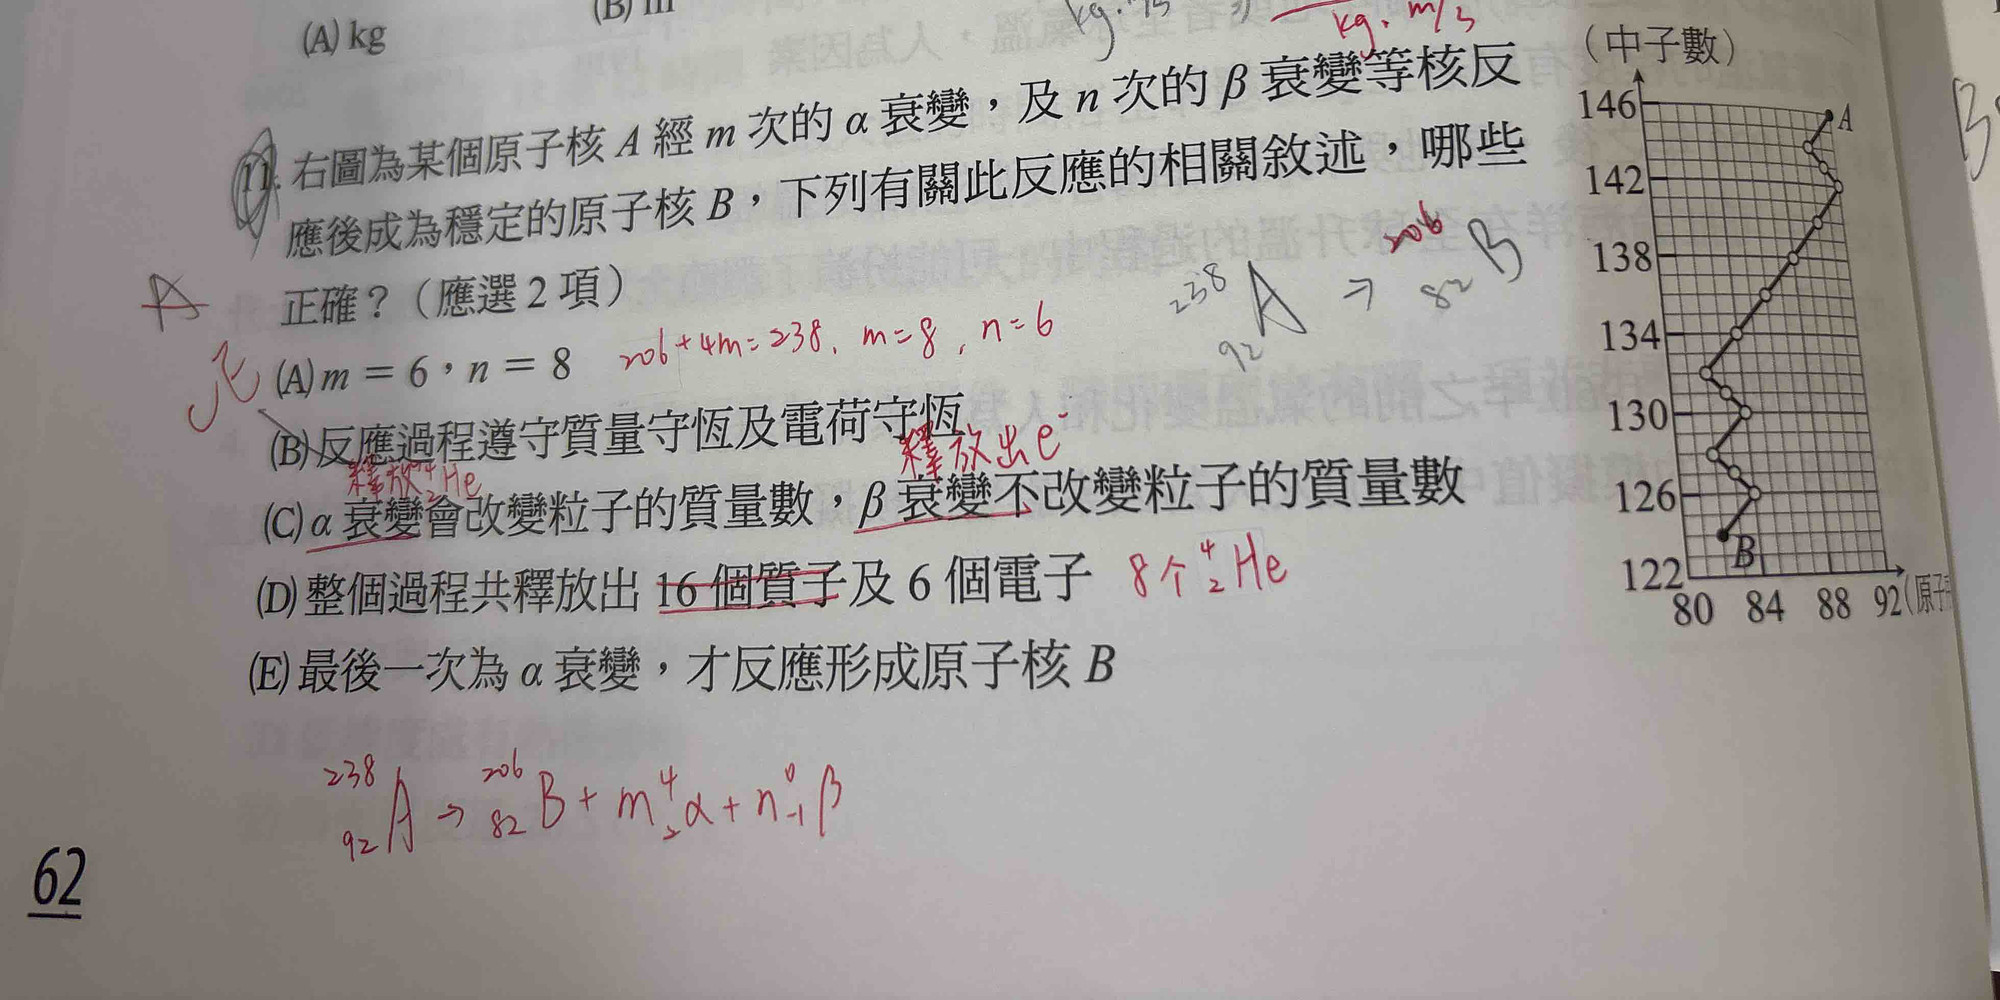 (A) kg
(B) m
kg.m/s
11. 右圖為某個原子核 A 經 m 次的 α 衰變，及 n 次的 β 衰變等核反
應後成為穩定的原子核 B，下列有關此反應的相關敘述，哪些
正確？（應選 2 項）
238 92 A → 206 82 B
(A) m = 6，n = 8
206+4m=238, m=8, n=6
(B) 反應過程遵守質量守恆及電荷守恆
釋放 4 2 He
釋放出 e⁻
(C) α 衰變會改變粒子的質量數，β 衰變不改變粒子的質量數
(D) 整個過程共釋放出 16 個質子及 6 個電子
8个 4 2 He
(E) 最後一次為 α 衰變，才反應形成原子核 B
238 92 A → 206 82 B + m 4 2 α + n 0 -1 β
62
（中子數）
146
A
142
138
134
130
126
B
122
80 84 88 92 (原子